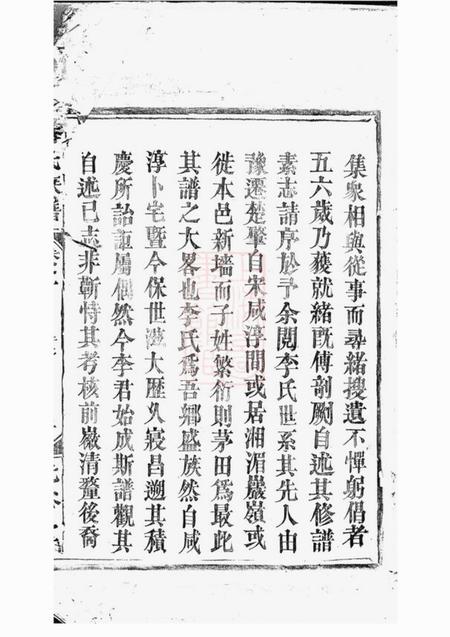 集衆相與從事而尋緒搜遺不憚躬倡者
五六歲乃獲就緒既傅剞劂自述其修譜
素志請序於予余閱李氏世系其先人由
豫遷楚肇自宋咸淳間或居湘湄巖嶺或
徙本邑新墻而子姓繁衍則茅田爲最此
其譜之大畧也李氏爲吾鄉盛族然自咸
淳卜宅暨今保世滋大歷久寖昌遡其積
慶所詒詎屬偶然今李君始成斯譜觀其
自述已志非蘄恃其考核前嶶清釐後裔
氏族譜